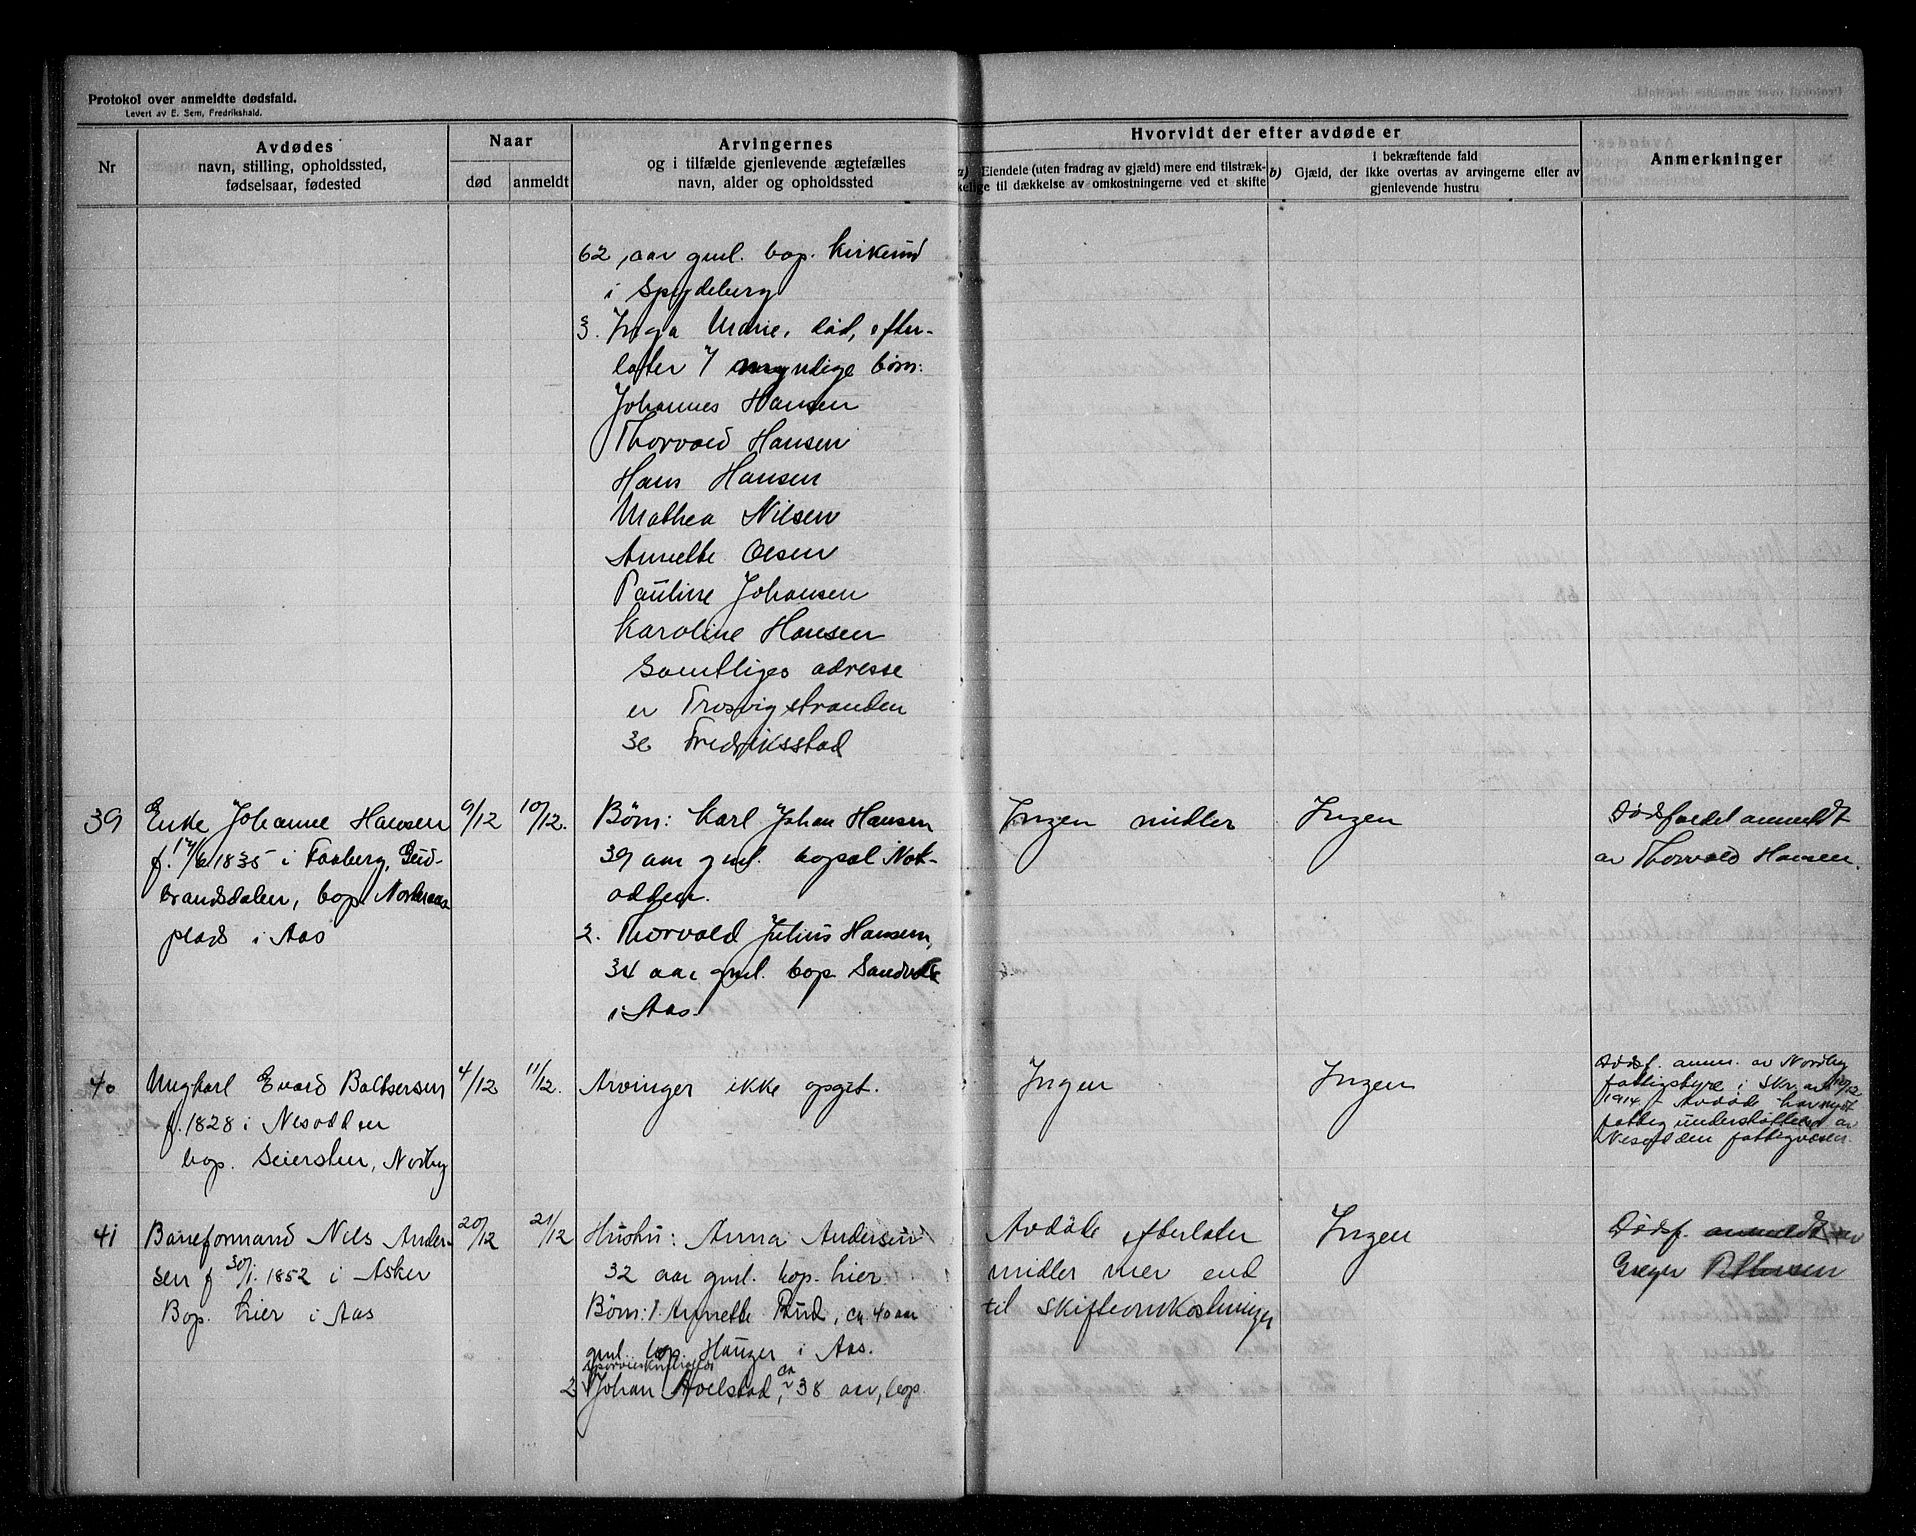 Protokol over anmeldte dødsfald.
Levert av E. Sem, Fredrikshald.
Nr
Avdødes
navn, stilling, opholdssted,
fødselsaar, fødested
Naar
død
anmeldt
Arvingernes
og i tilfælde gjenlevende ægtefælles
navn, alder og opholdssted
Hvorvidt der efter avdøde er
a) Eiendele (uten fradrag av gjæld) mere end tilstræk-
kelige til dækkelse av omkostningerne ved et skifte
I bekræftende fald
b) Gjæld, der ikke overtas av arvingerne eller av
gjenlevende hustru
Anmerkninger
62 aar gml. bop. Kirkerud
i Spydeberg
3. Inga Marie, død, efter-
later 7 myndige børn:
Johannes Hansen
Thorvald Hansen
Hans Hansen
Mathea Nilsen
Annette Olsen
Pauline Johansen
Karoline Hansen
Samtliges adresse
er Trosvigstranden
3c Fredriksstad
39
Enke Johanne Hansen
f. 14/6 1835 i Faaberg, Gud-
brandsdalen, bop. Norderaas
plads i Aas
9/12
10/12.
Børn: Karl Johan Hansen
39 aar gml. bopæl Not-
odden.
2. Thorvald Julius Hansen,
34 aar gml. bop.
i Aas.
Ingen midler
Ingen
Dødsfaldet anmeldt
av Thorvald Hansen.
40
Ungkarl Evard Baltsersen
f. 1828 i Nesodden
bop. Seiersten, Nordby
4/12
11/12.
Arvinger ikke opgit.
Ingen
Ingen
Dødsf. anm. av Nordby
fattigstyre i Skr. av 10/12
1914 - Avdøde har nydt
fattigunderstøttelse av
Nesodden fattigvæsen.
41
Baneformand Nils Ander-
sen f 30/1. 1852 i Asker
Bop. hier i Aas
20/12
21/12
Hustru: Anna Andersen
32 aar gml. bop. hier.
Børn: 1 Annette Rud, ca. 40 aar
gml. bop. Hauger i Aas.
2 Johan Avelstad, ca 38 aar, bop.
Avdøde efterlater
midler mer end
til skifteomkostninger
Ingen
Dødsf. anmeldt av
Greger Pettersen